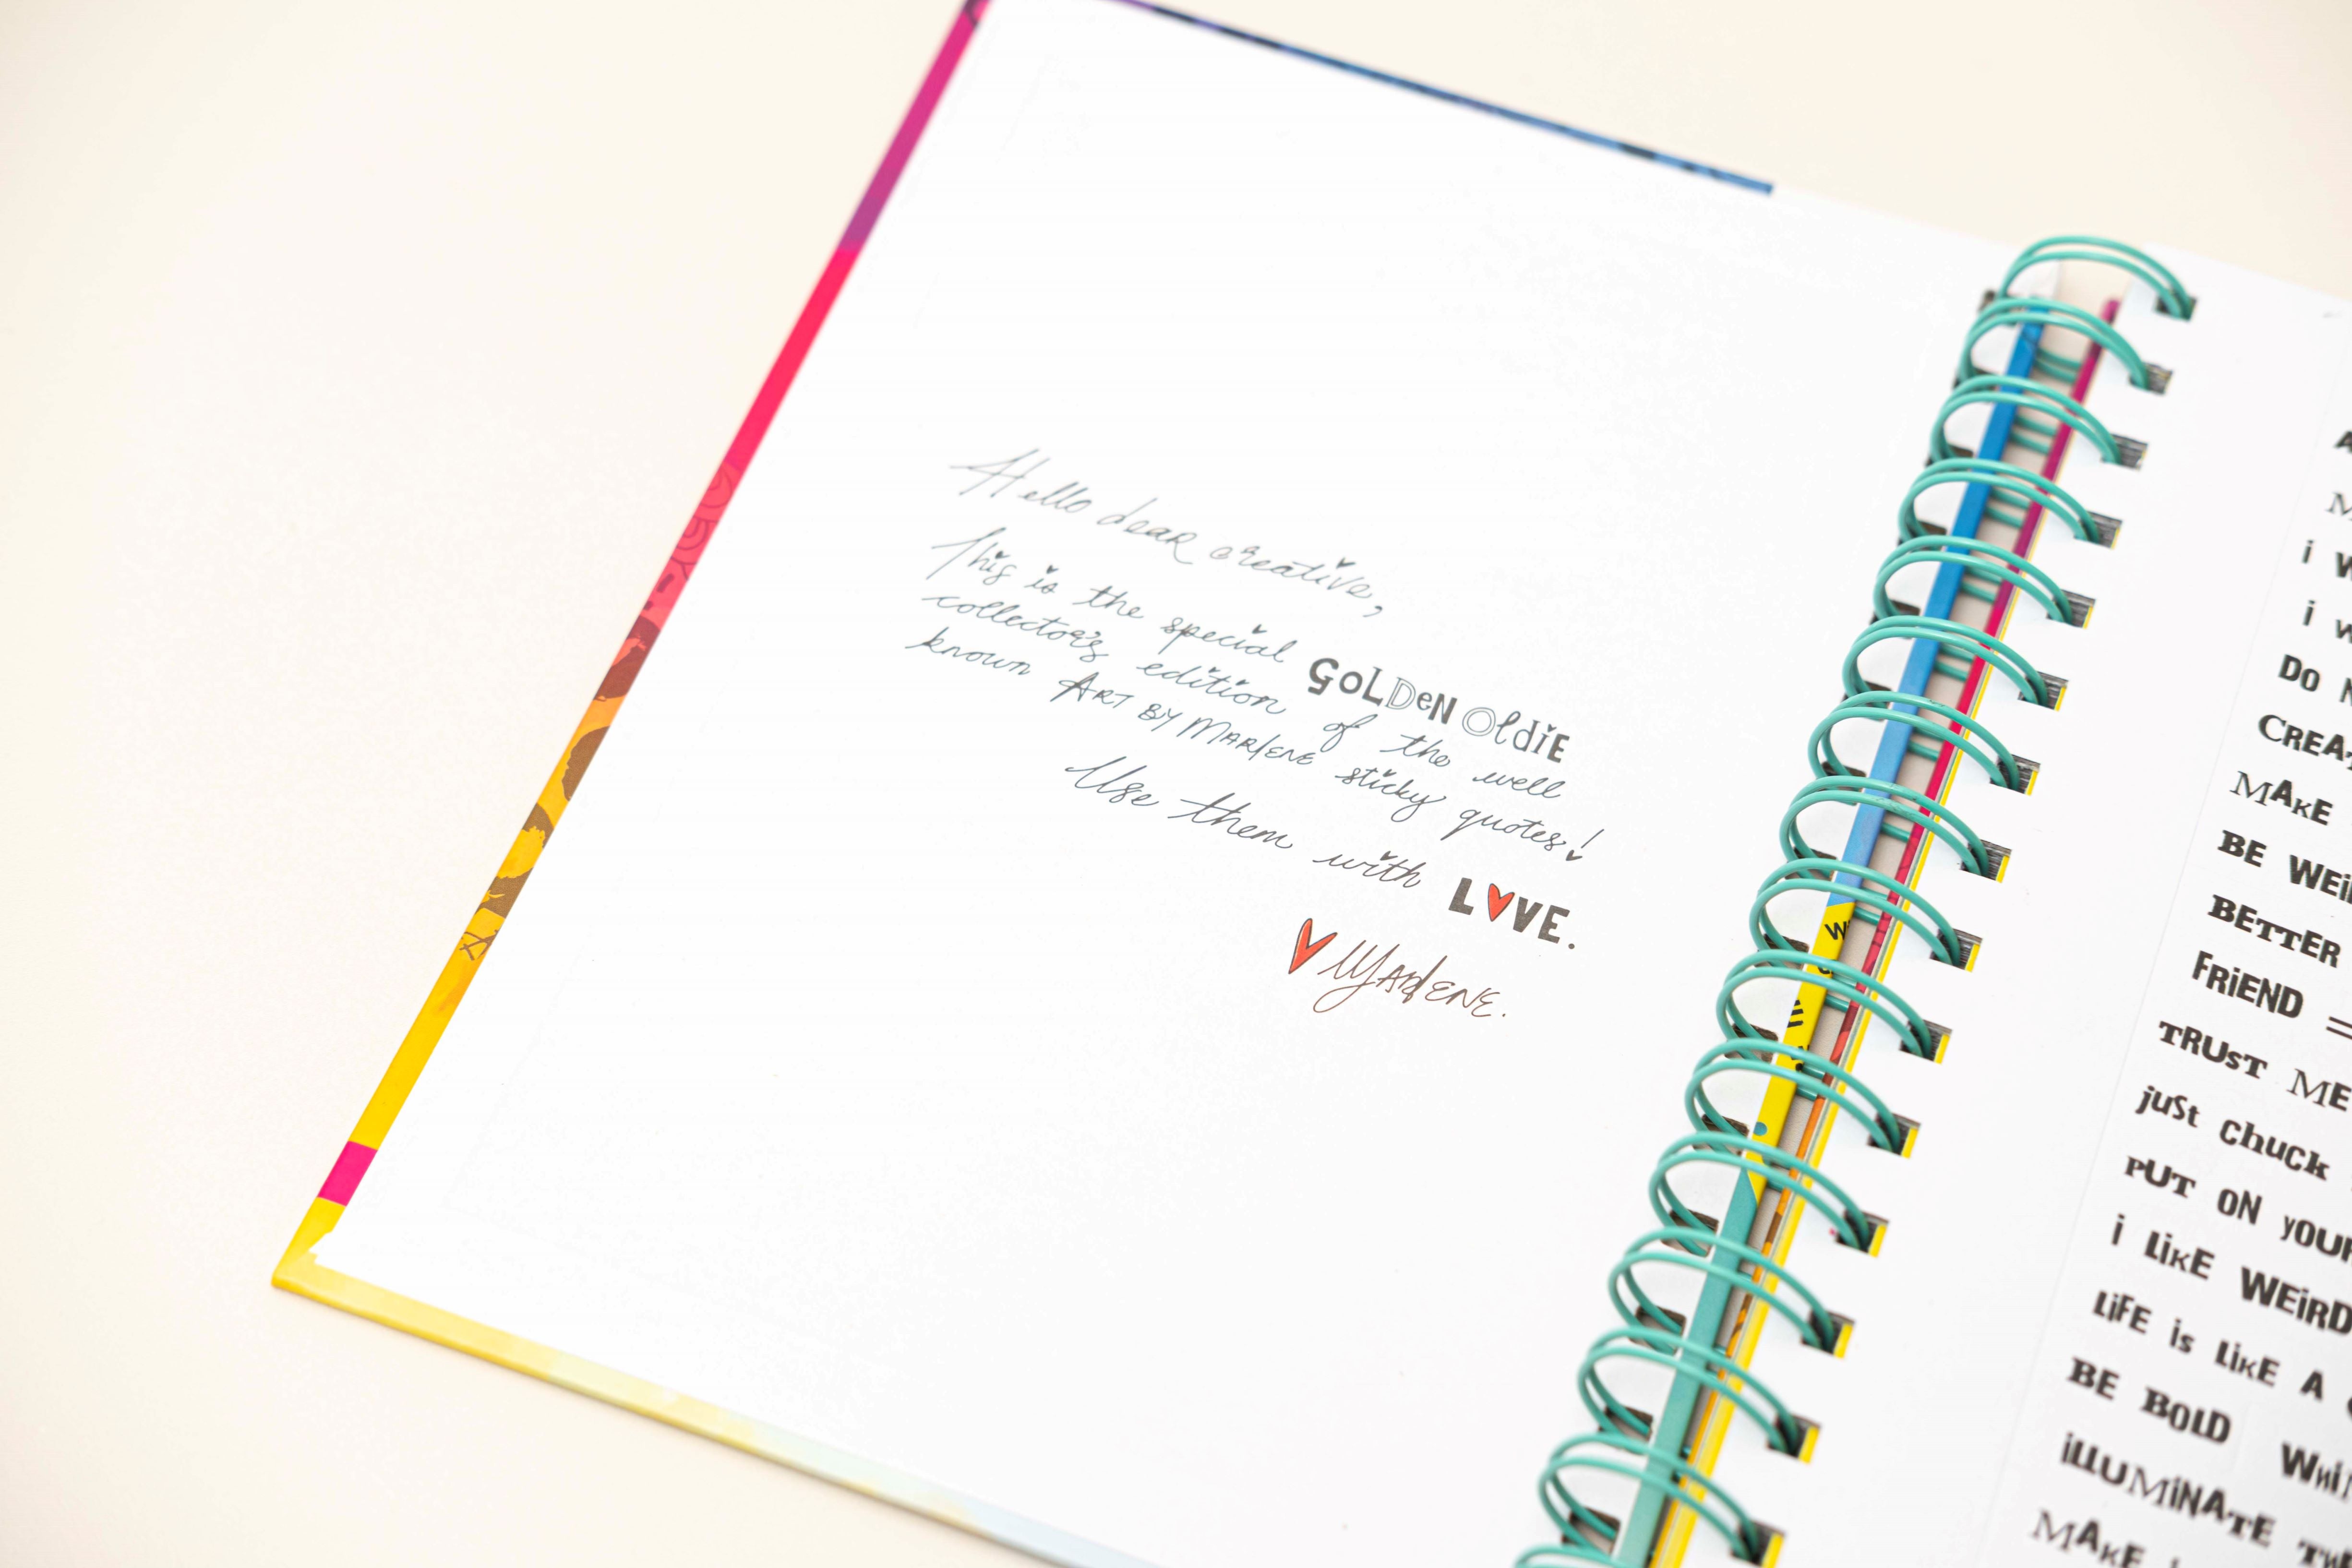 Hello dear creative,
This is the special GOLDEN OLDIE
collector's edition of the well
known ART BY MARLENE sticky quotes!
Use them with LOVE.
MARLENE.
i
i
DO
CREA
MAKE
BE WEi
BETTER
FRiEND =
TRUST ME
just chuck
PUT ON YOUR
i LiKE WEiRD
LiFE is LiKE A
BE BOLD
iLLUMiNATE
MAKE